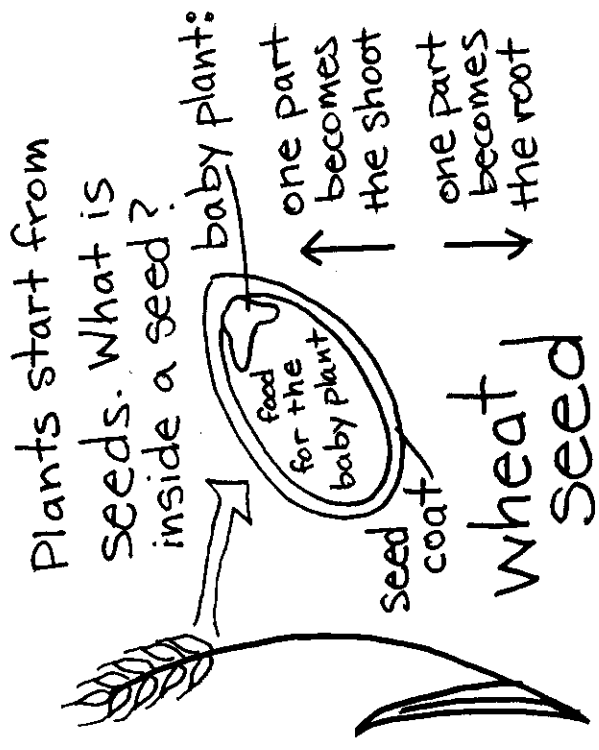 Plants start from
seeds. What is
inside a seed?
baby plant:
one part
becomes
the shoot
one part
becomes
the root
food
for the
baby plant
seed
coat
Wheat
Seed